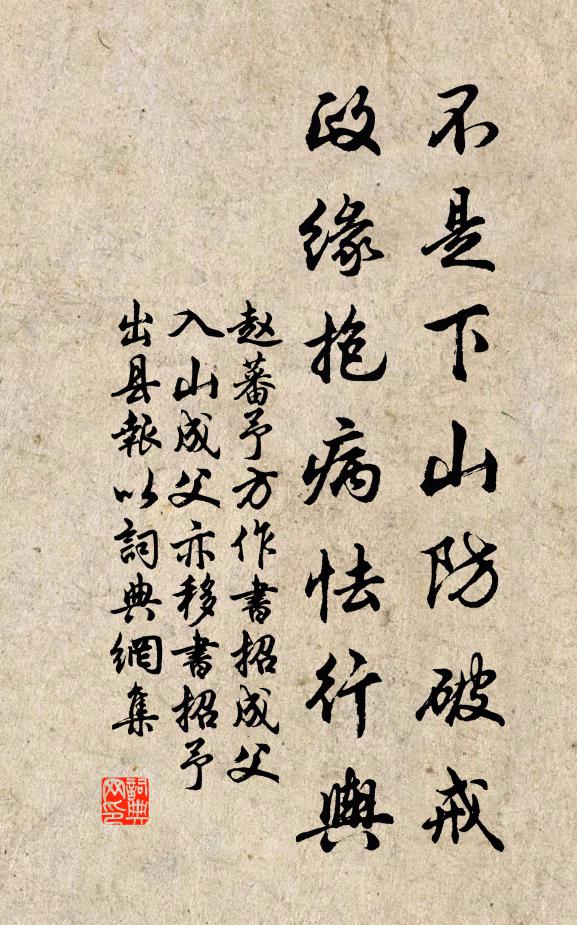 不是下山防破戒
政缘抱病怯行舆
赵蕃予方作書招成父
入山成父亦移書招予
出县報以詞典網集
詞典
网印